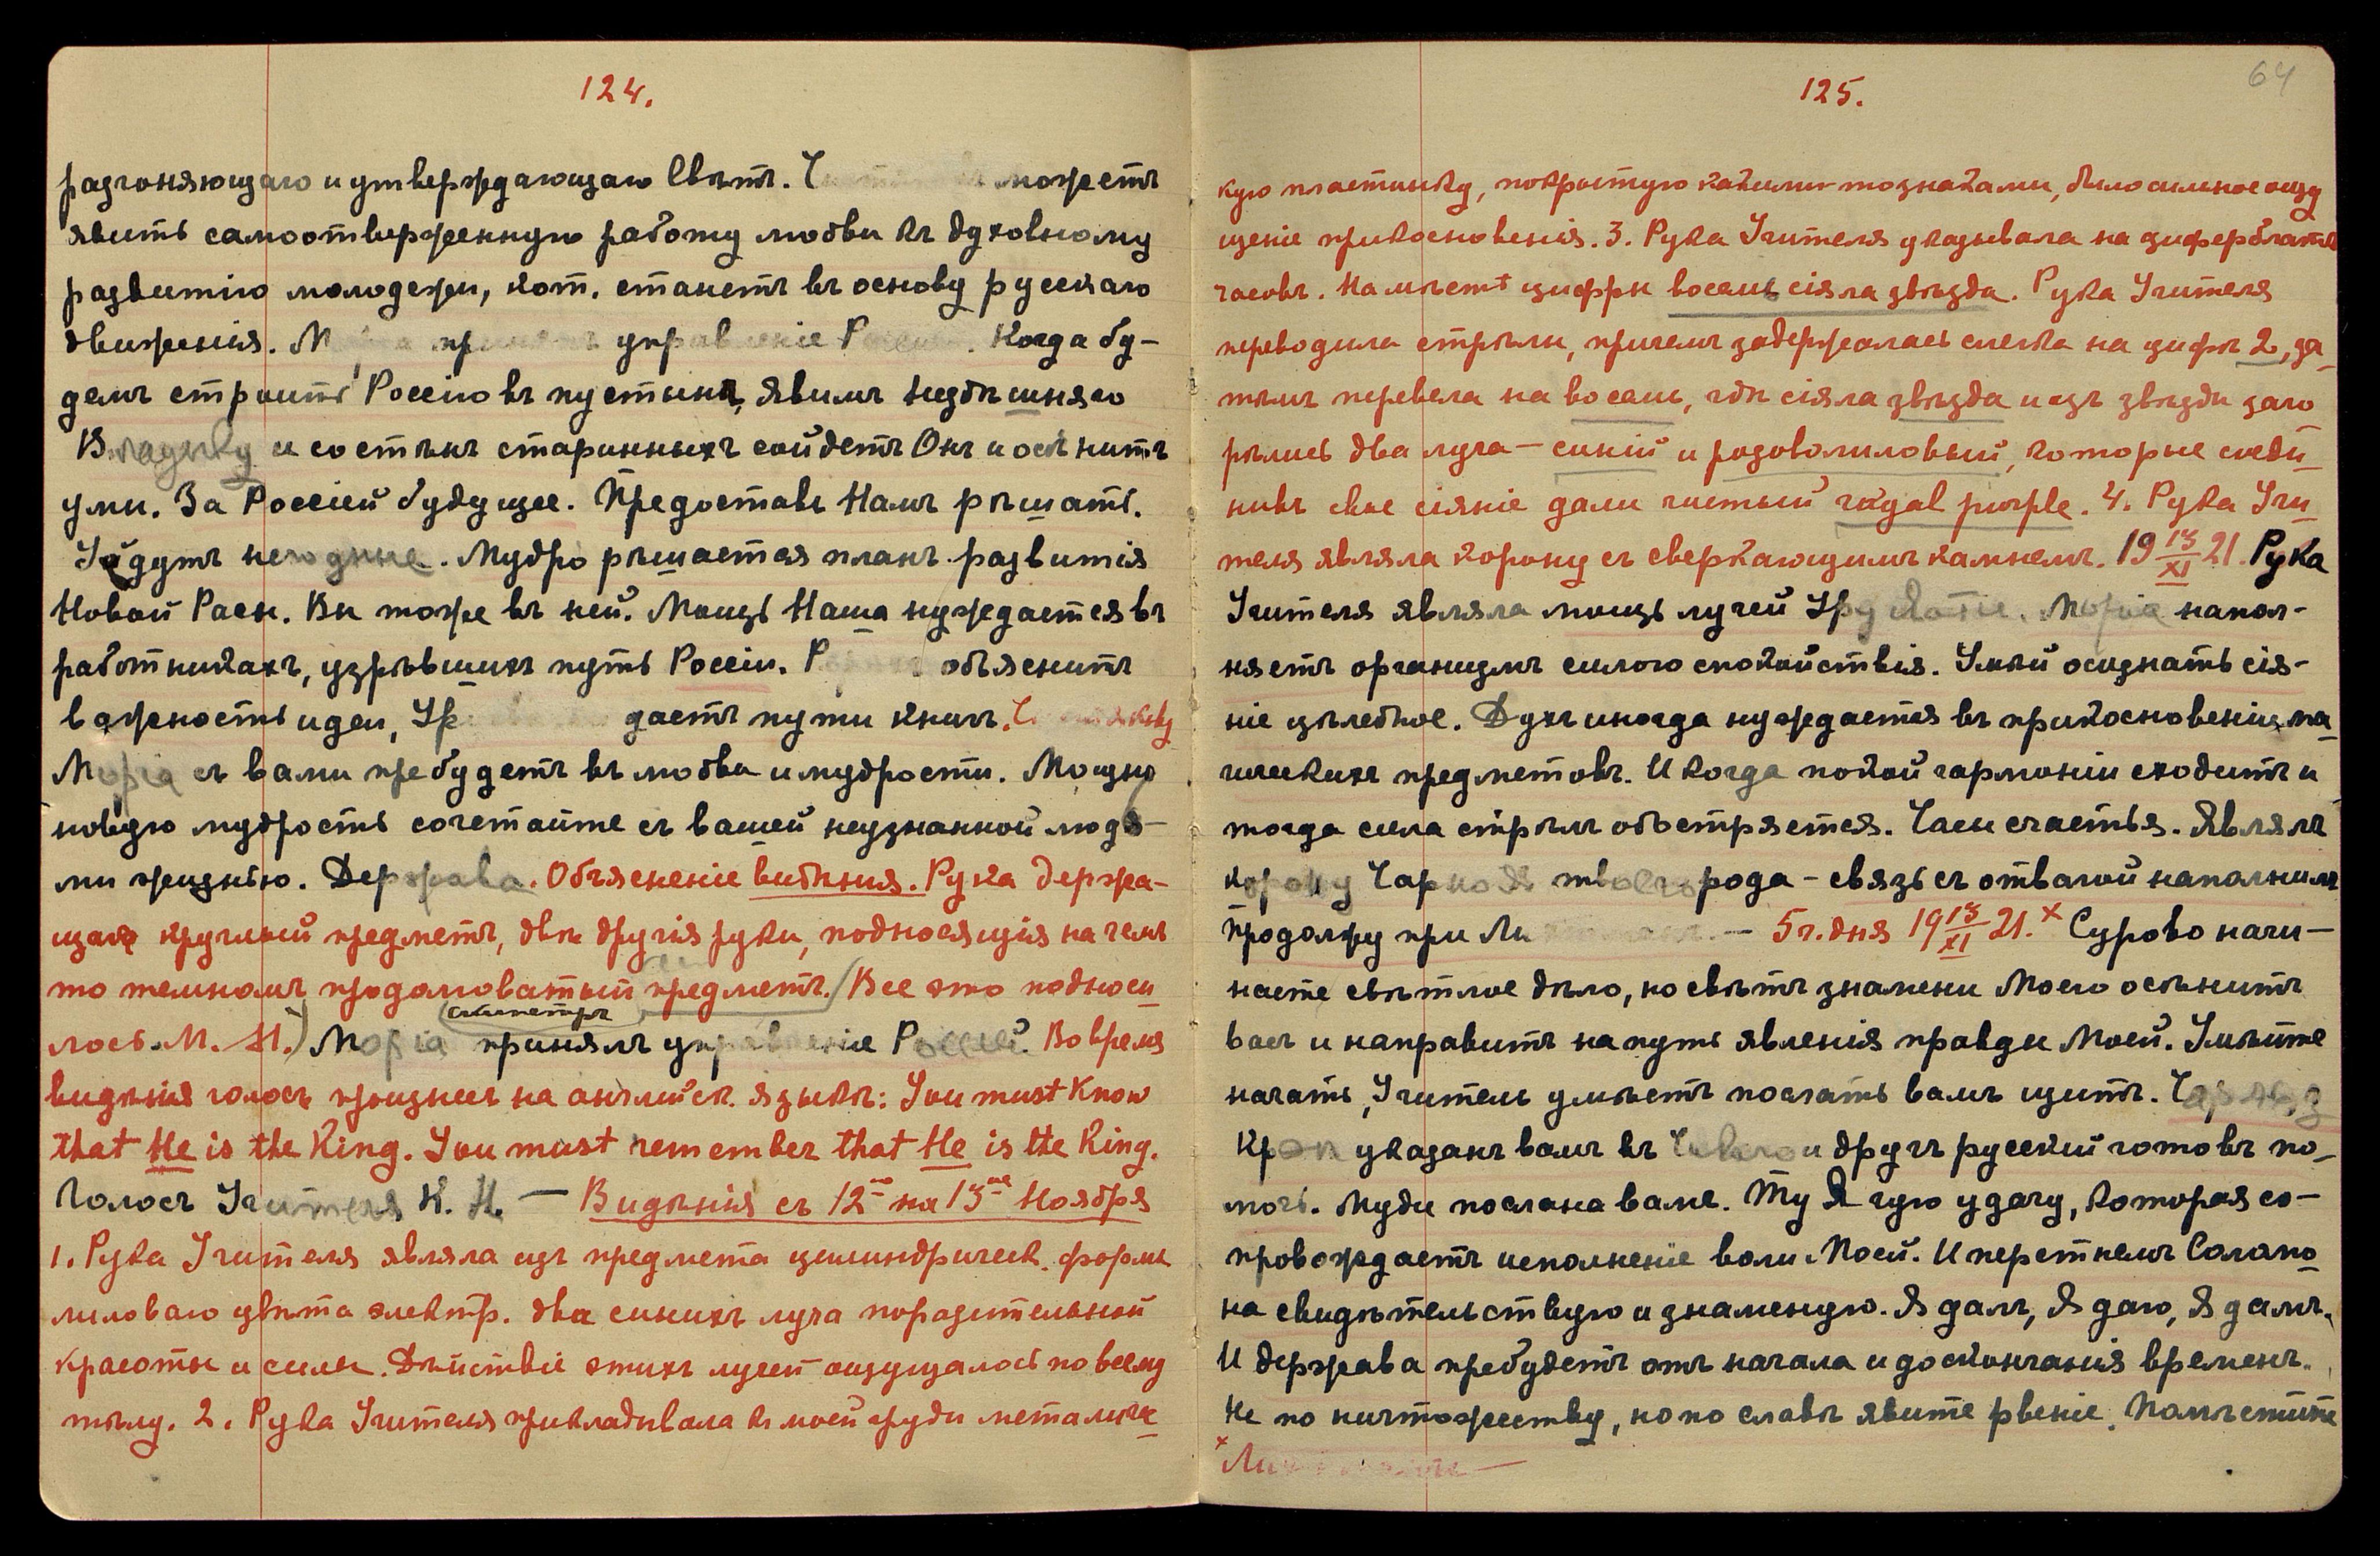 124.
разгоняющаго и утверждающаго Свѣтъ. можетъ
явить самоотверженную работу любви къ духовному
развитію молодежи, кот. станетъ въ основу русскаго
движенія. управленіе Когда бу-
демъ строить Россію въ пустынѣ, явимъ нездѣшняго
Владыку и со стѣнъ старинныхъ сойдетъ Онъ и осѣнитъ
умы. За Россіей будущее. Предоставь Намъ рѣшать.
Уйдутъ негодные. Мудро рѣшается планъ развитія
Новой Расы. Вы тоже въ ней. Мощь Наша нуждается въ
работникахъ, узрѣвшихъ путь Россіи. объяснитъ
важность идеи, даетъ пути книгъ.
Моріа съ вами пребудетъ въ любви и мудрости. Мощно
новую мудрость сочетайте съ вашей неузнанной людь-
ми жизнью. Держава. Объясненіе видѣнія. Рука держа-
щая круглый предметъ, двѣ другія руки, подносящія на чемъ
то темномъ продолговатый предметъ. (Все это подноси
скипетръ
лось М. М.) Моріа принялъ управленіе Россіей. Во время
видѣнія голосъ произнесъ на английск. языкѣ: You must know
that He is the King. You must remember that He is the King.
Голосъ Учителя К. Н. — Видѣнія съ 12го на 13ое Ноября
1. Рука Учителя являла изъ предмета цилиндрическ. формы
лиловаго цвѣта электр. два синихъ луча поразительной
красоты и силы. Дѣйствіе этихъ лучей ощущалось по всему
тѣлу. 2. Рука Учителя прикладывала къ моей груди металличе
64
125.
кую пластинку, покрытую какими-то знаками, было сильное ощу
щеніе прикосновенія. 3. Рука Учителя указывала на циферблатъ
часовъ. На мѣстѣ цифры восемь сіяла звѣзда. Рука Учителя
переводила стрѣлы, причемъ задержалась слегка на цифрѣ 2, за
тѣмъ перевела на восемь, гдѣ сіяла звѣзда и изъ звѣзды заго
рѣлись два луча — синій и розоволиловый, которые соеди
нивъ свое сіяніе дали чистый royal purple. 4. Рука Учи
теля являла корону съ сверкающимъ камнемъ. 19 13/XI 21. Рука
Учителя являла мощь лучей Моріа напол-
няетъ организмъ силою спокойствія. Умѣй осознать сія-
ніе цѣлебное. Духъ иногда нуждается въ прикосновеніи ма
гическихъ предметовъ. И когда покой гармоніи сходитъ и
тогда сила стрѣлъ обостряется. Часы счастья. Являлъ
корону твоего рода — связь съ отвагой наполнилъ
Продолжу при — 5 ч. дня 19 13/XI 21.х Сурово начи-
наете свѣтлое дѣло, но свѣтъ знамени Моего осѣнитъ
васъ и направитъ на путь явленія правды Моей. Умѣйте
начать, Учитель умѣетъ послать вамъ щитъ.
указанъ вамъ въ и другъ русскій готовъ по-
мочь. Муди послана вами. Ту Я чую удачу, которая со-
провождаетъ исполненіе воли Моей. И перстнемъ Соломо
на свидѣтельствую и знаменую. Я далъ, Я даю, Я дамъ.
И держава пребудетъ отъ начала и до скончанія временъ.
Не по ничтожеству, но по славѣ явите рвеніе. Помѣстите